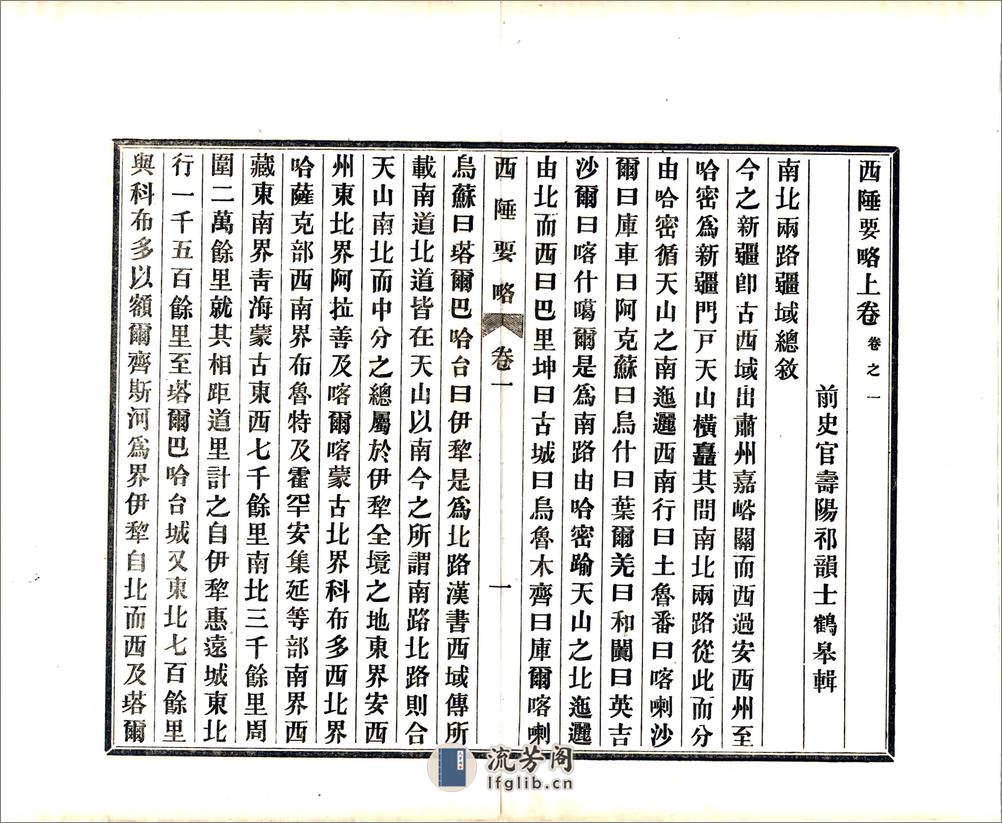 西陲要略上卷 卷之一
前史官壽陽祁韻士鶴皋輯
南北兩路疆域總敘
今之新疆卽古西域出肅州嘉峪關而西過安西州至
哈密爲新疆門戸天山橫矗其間南北兩路從此而分
由哈密循天山之南迤邐西南行曰土魯番曰喀喇沙
爾曰庫車曰阿克蘇曰烏什曰葉爾羌曰和闐曰英吉
沙爾曰喀什噶爾是爲南路由哈密踰天山之北迤邐
由北而西曰巴里坤曰古城曰烏魯木齊曰庫爾喀喇
西陲要略 卷一 一
烏蘇曰塔爾巴哈台曰伊犂是爲北路漢書西域傳所
載南道北道皆在天山以南今之所謂南路北路則合
天山南北而中分之總屬於伊犂全境之地東界安西
州東北界阿拉善及喀爾喀蒙古北界科布多西北界
哈薩克部西南界布魯特及霍罕安集延等部南界西
藏東南界青海蒙古東西七千餘里南北三千餘里周
圍二萬餘里就其相距道里計之自伊犂惠遠城東北
行一千五百餘里至塔爾巴哈台城又東北七百餘里
與科布多以額爾齊斯河爲界伊犂自北而西及塔爾
流芳阁
lfglib.cn